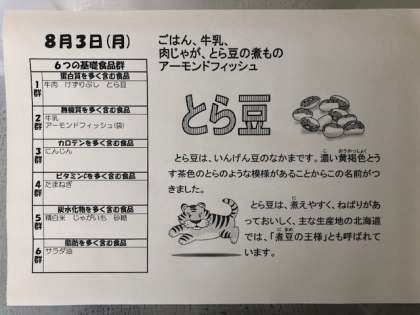 8月3日(月)
ごはん、牛乳、
肉じゃが、とら豆の煮もの
アーモンドフィッシュ
6つの基礎食品群
1群
蛋白質を多く含む食品
牛肉 けずりぶし とら豆
2群
無機質を多く含む食品
牛乳
アーモンドフィッシュ(袋)
3群
カロテンを多く含む食品
にんじん
4群
ビタミンCを多く含む食品
たまねぎ
5群
炭水化物を多く含む食品
精白米 じゃがいも 砂糖
6群
脂肪を多く含む食品
サラダ油
とら豆
とら豆は、いんげん豆のなかまです。濃い黄褐色とう
す茶色のとらのような模様があることからこの名前がつ
きました。
とら豆は、煮えやすく、ねばりがあ
っておいしく、主な生産地の北海道
では、「煮豆の王様」とも呼ばれて
います。